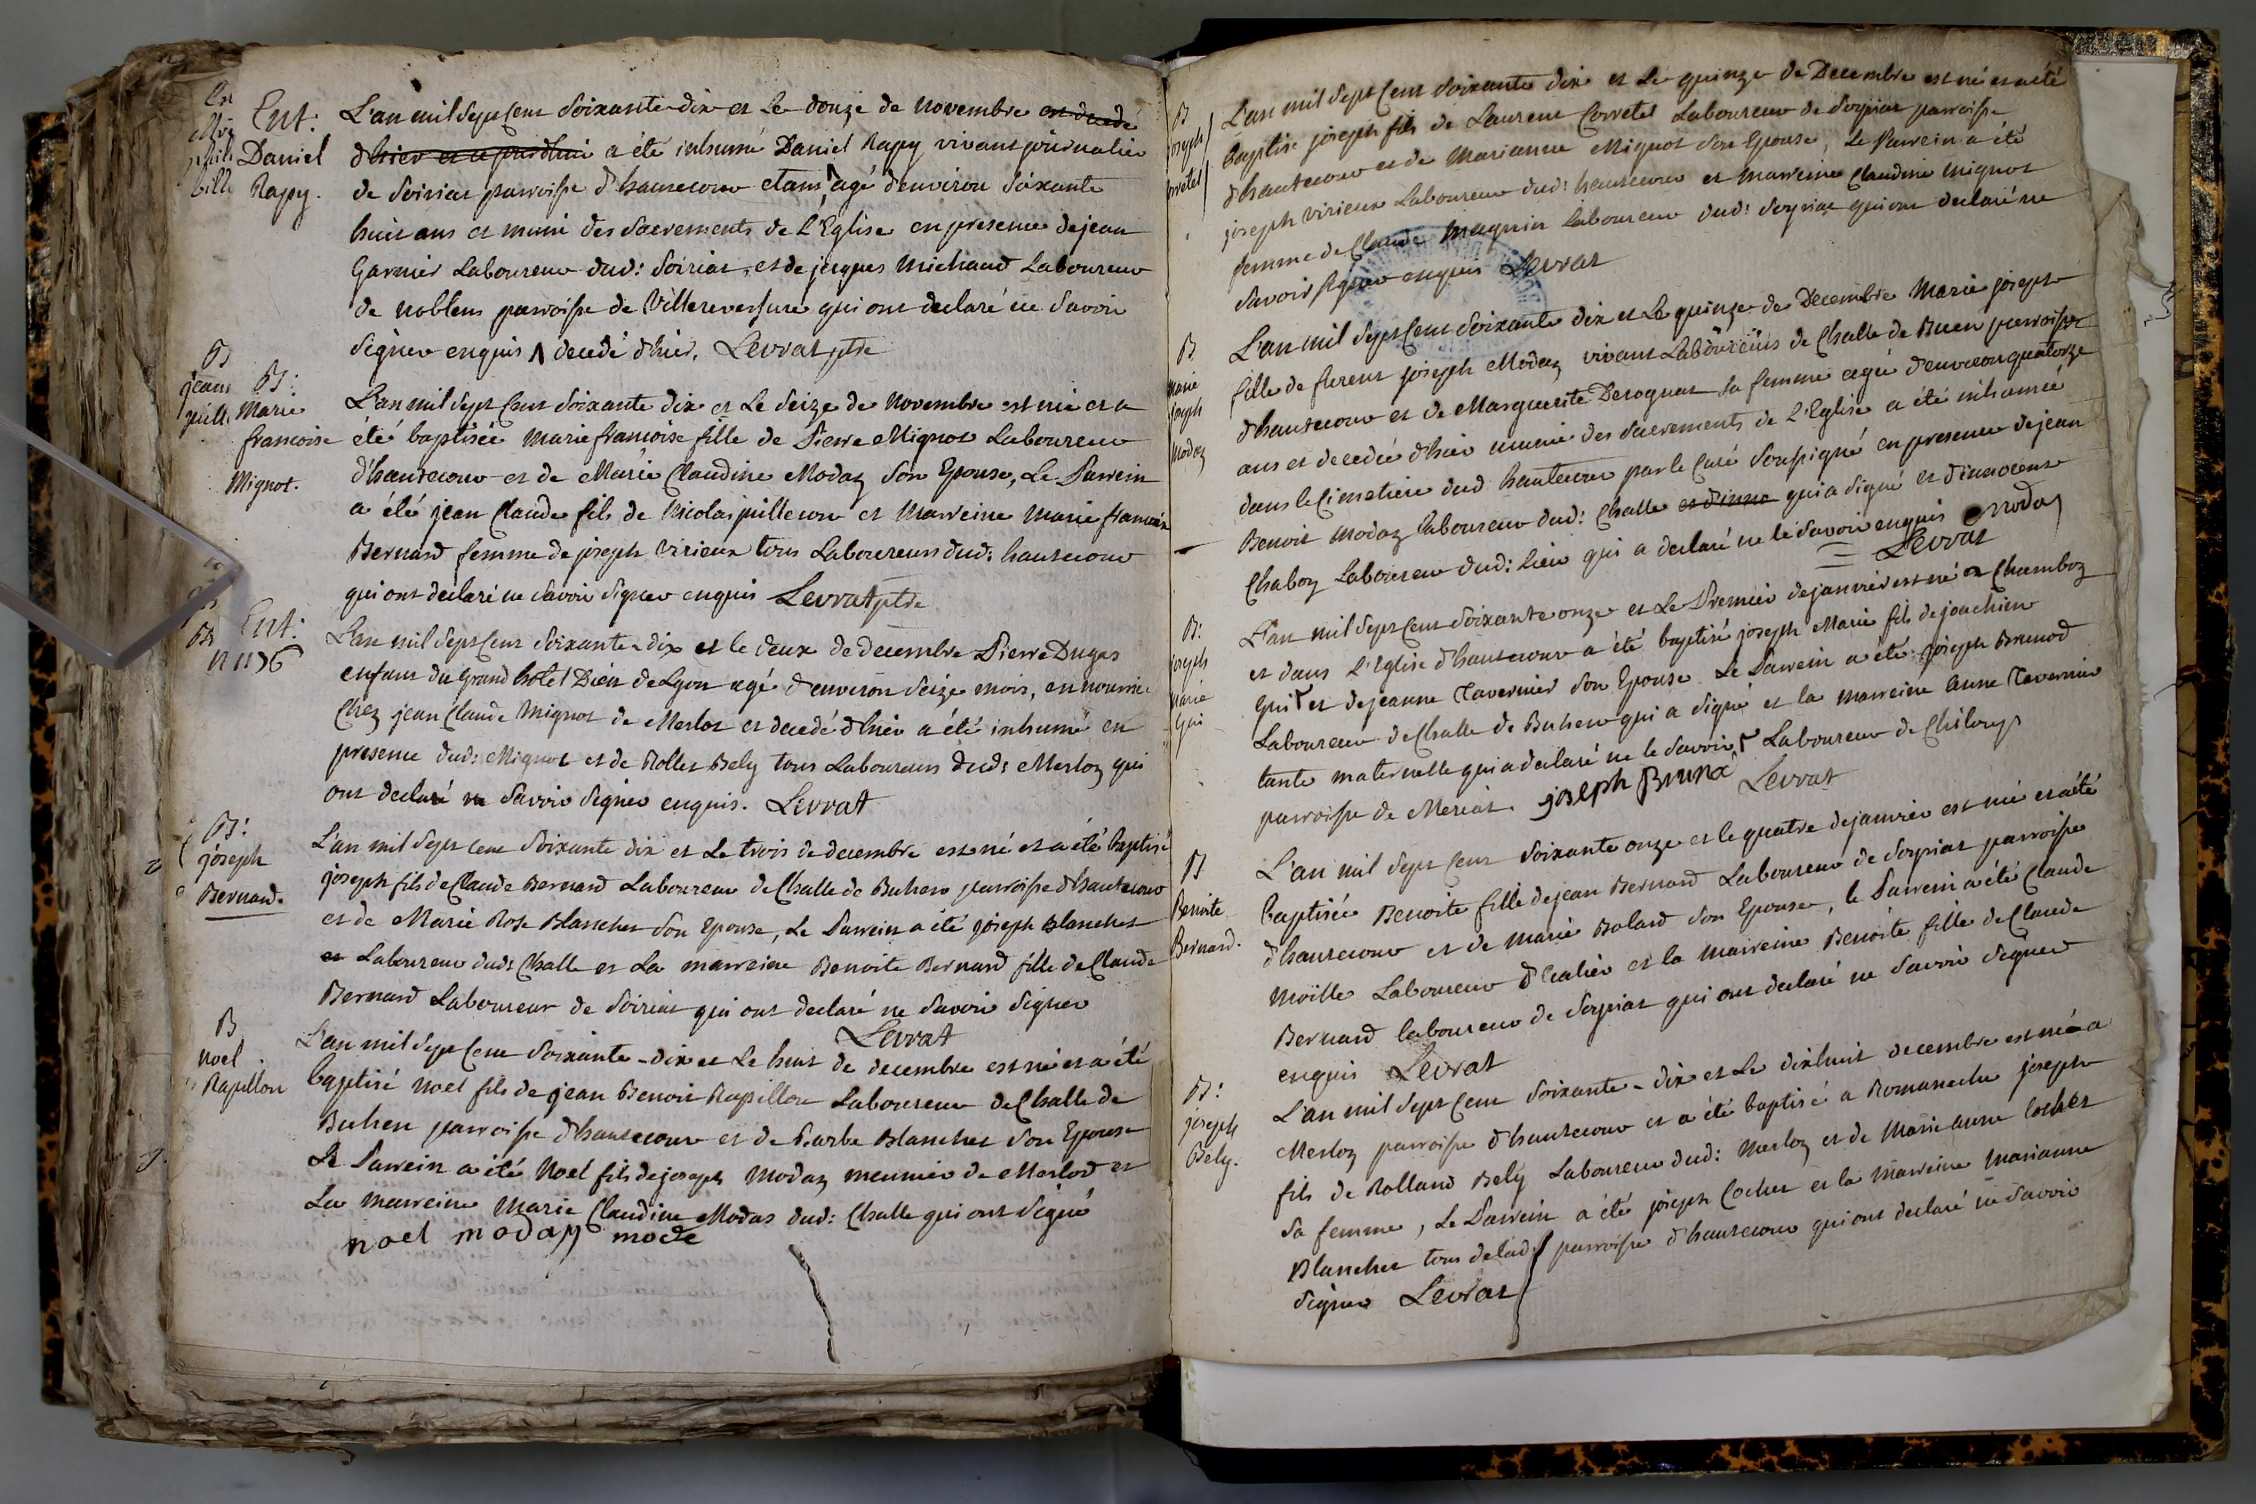 Ent:
Daniel
Rapy.
L'an mil sept cent soixante-dix et le douze de novembre est decedé
d'hier et ce jourdhui a été inhumé Daniel Rapy vivant journalier
de soiriat parroisse d'hautecour etant agé d'environ soixante
huit ans et muni des sacrements de L'Eglise en presence de jean
Garnier Laboureur dud: soiriat, et de jacques Michaud Laboureur
de noblens parroisse de Villereversure qui ont declaré ne savoir
signer enquis decedé d'hier. Levrat ptre
B:
Marie
francoise
Mignot.
L'an mil sept cent soixante dix et Le seize de novembre est née et a
été baptisée Marie francoise fille de Pierre Mignot Laboureur
d'hautecour et de Marie Claudine Moday son Epouse, Le Parrein
a été jean Claude fils de Nicolas juilleron et Marreine Marie francoise
Bernard femme de joseph Virieux tous Laboureurs dud: hautecour
qui ont declaré ne savoir signer enquis Levrat ptre
Ent:
L'an mil sept cent soixante-dix et le deux de decembre Pierre Dugas
enfant du Grand hotel Dieu de Lyon agé d'environ seize mois, en nourrice
Chez jean Claude Mignot de Merloz et decedé d'hier a été inhumé en
presence dud: Mignot et de Rollet Bely tous Laboureurs dud: Merloz qui
ont declaré ne savoir signer enquis. Levrat
B:
joseph
Bernard.
L'an mil sept cent soixante dix et Le trois de decembre est né et a été baptisé
joseph fils de Claude Bernard Laboureur de Challe de Buhen parroisse d'hautecour
et de Marie Rose Blanchet son Epouse, Le Parrein a été joseph Blanchet
et Laboureur dud: Challe et La marreine Benoite Bernard fille de Claude
Bernard Laboureur de soiriat qui ont declaré ne savoir signer
Levrat
B
Noel
Rapillon
L'an mil sept cent soixante-dix et Le huit de decembre est né et a été
baptisé Noel fils de jean Benoit Rapillon Laboureur de Challe de
Buhen parroisse d'hautecour et de Barbe Blanchet son Epouse
Le Parrein a été Noel fils de joseph Moday meunier de Merlod et
La marreine Marie Claudine Modas dud: Challe qui ont signé
noel moday mode
B
joseph
Corretel
L'an mil sept cent soixante dix et Le quinze de Decembre est né et a été
baptisé joseph fils de Laurent Corretel Laboureur de soyriat parroisse
d'hautecour et de Marianne Mignot son Epouse, Le Parrein a été
joseph Virieux Laboureur dud: hautecour et marreine Claudine Mignot
femme de Claude Magnin Laboureur dud: soyriat qui ont declaré ne
savoir signer enquis Levrat
B
Marie
joseph
Moday
L'an mil sept cent soixante dix et Le quinze de Decembre Marie joseph
fille de florent joseph Moday vivant Laboureur de Challe de Buen parroisse
d'hautecour et de Marguerite Derognat sa femme agée d'environ quatorze
ans et decedée d'hier munie des sacrements de L'Eglise a été inhumée
dans le Cimetiere dud hautecour par le Curé soussigné en presence de jean
Benoit Moday Laboureur dud: Challe qui a signé et d'innocent
Chaboy Laboureur dud: Lieu qui a declaré ne le savoir enquis moday
Levrat
B:
joseph
Marie
Gui
L'an mil sept cent soixante onze et Le Premier de janvier est né a Chamboz
et dans L'Eglise d'hautecour a été baptisé joseph Marie fils de joachim
Gui et de jeanne Tavernier son Epouse. Le Parrein a été joseph Brunod
Laboureur de Challe de Buhen qui a signé et la marreine anne Tavernier
tante maternelle qui a declaré ne le savoir, Laboureur de Chiloup
parroisse de Meriat. joseph Bruno Levrat
B
Benoite
Bernard.
L'an mil sept cent soixante onze et le quatre de janvier est née et a été
baptisée Benoite fille de jean Bernard Laboureur de soyriat parroisse
d'hautecour et de Marie Bolard son Epouse, le Parrein a été Claude
Moïlle Laboureur et la Marreine Benoite fille de Claude
Bernard laboureur de soyriat qui ont declaré ne savoir signer
enquis Levrat
B:
joseph
Bely.
L'an mil sept cent soixante-dix et Le dixhuit decembre est né a
Merloz parroisse d'hautecour et a été baptisé a Romaneche joseph
fils de Rolland Bely Laboureur dud: Merloz et de Marie anne Cochet
sa femme, Le Parrein a été joseph Cochet et la Marreine Marianne
Blanchet tous de lad: parroisse d'hautecour qui ont declaré ne savoir
signer Levrat